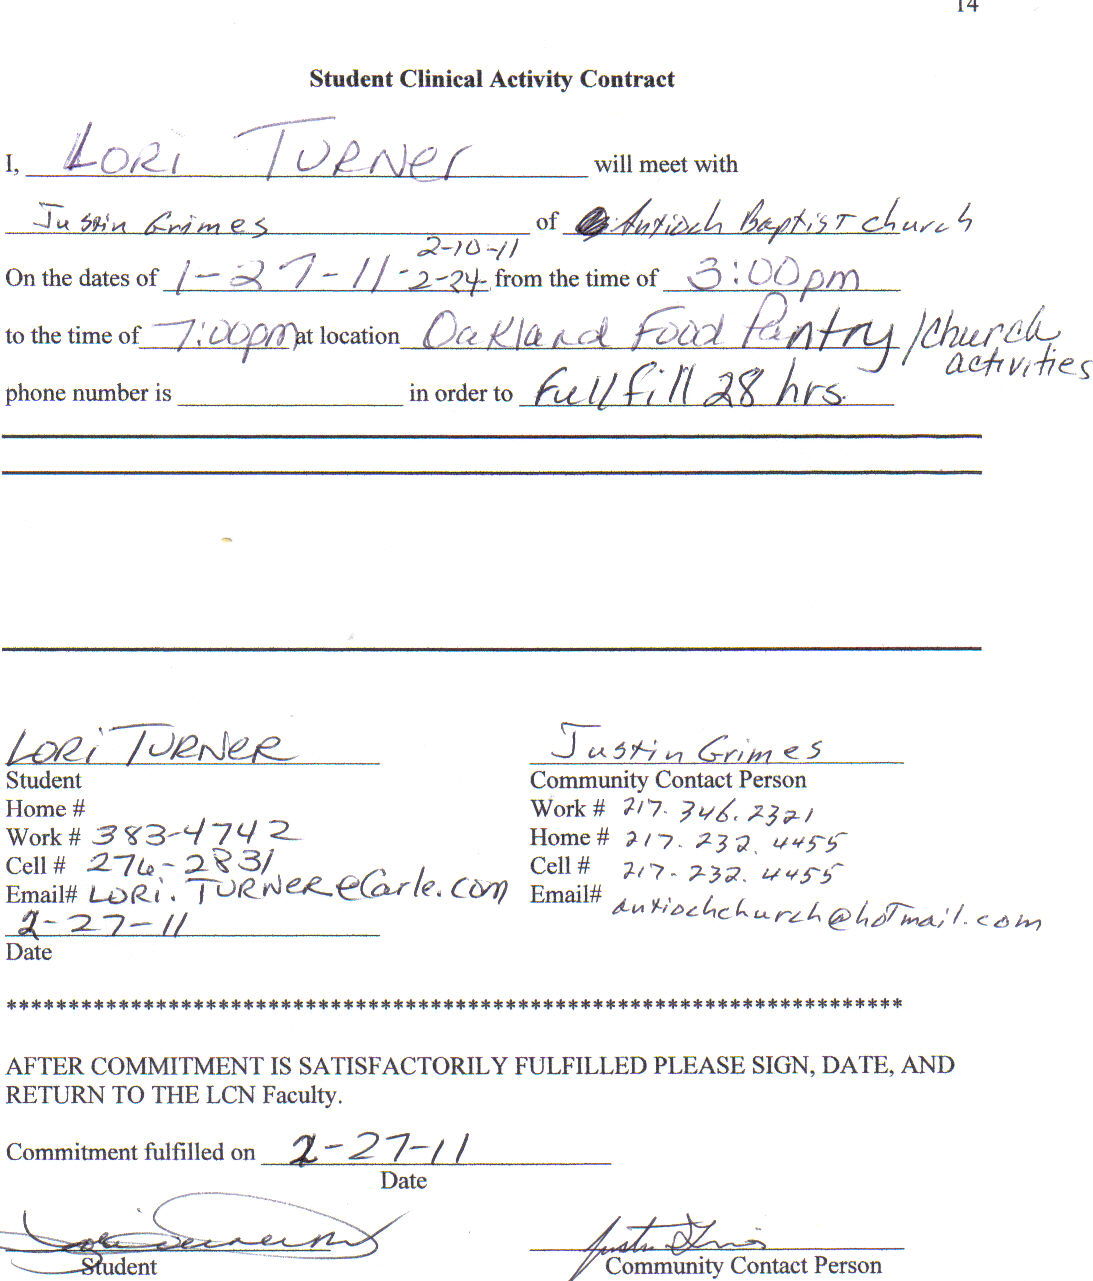 14
Student Clinical Activity Contract
I, LORI TURNER will meet with
Justin Grimes of Antioch Baptist church
2-10-11
On the dates of 1-27-11 - 2-24- from the time of 3:00pm
to the time of 7:00pm at location Oakland Food Pantry/church
activities
phone number is in order to fullfill 28 hrs.
LORI TURNER Justin Grimes
Student Community Contact Person
Home # Work # 217.346.2321
Work # 383-4742 Home # 217.232.4455
Cell # 276-2831 Cell # 217-232.4455
Email# LORi.TURNER@Carle.com Email# antiochchurch@hotmail.com
2-27-11
Date
************************************************************************
AFTER COMMITMENT IS SATISFACTORILY FULFILLED PLEASE SIGN, DATE, AND
RETURN TO THE LCN Faculty.
Commitment fulfilled on 2-27-11
Date
Student Community Contact Person